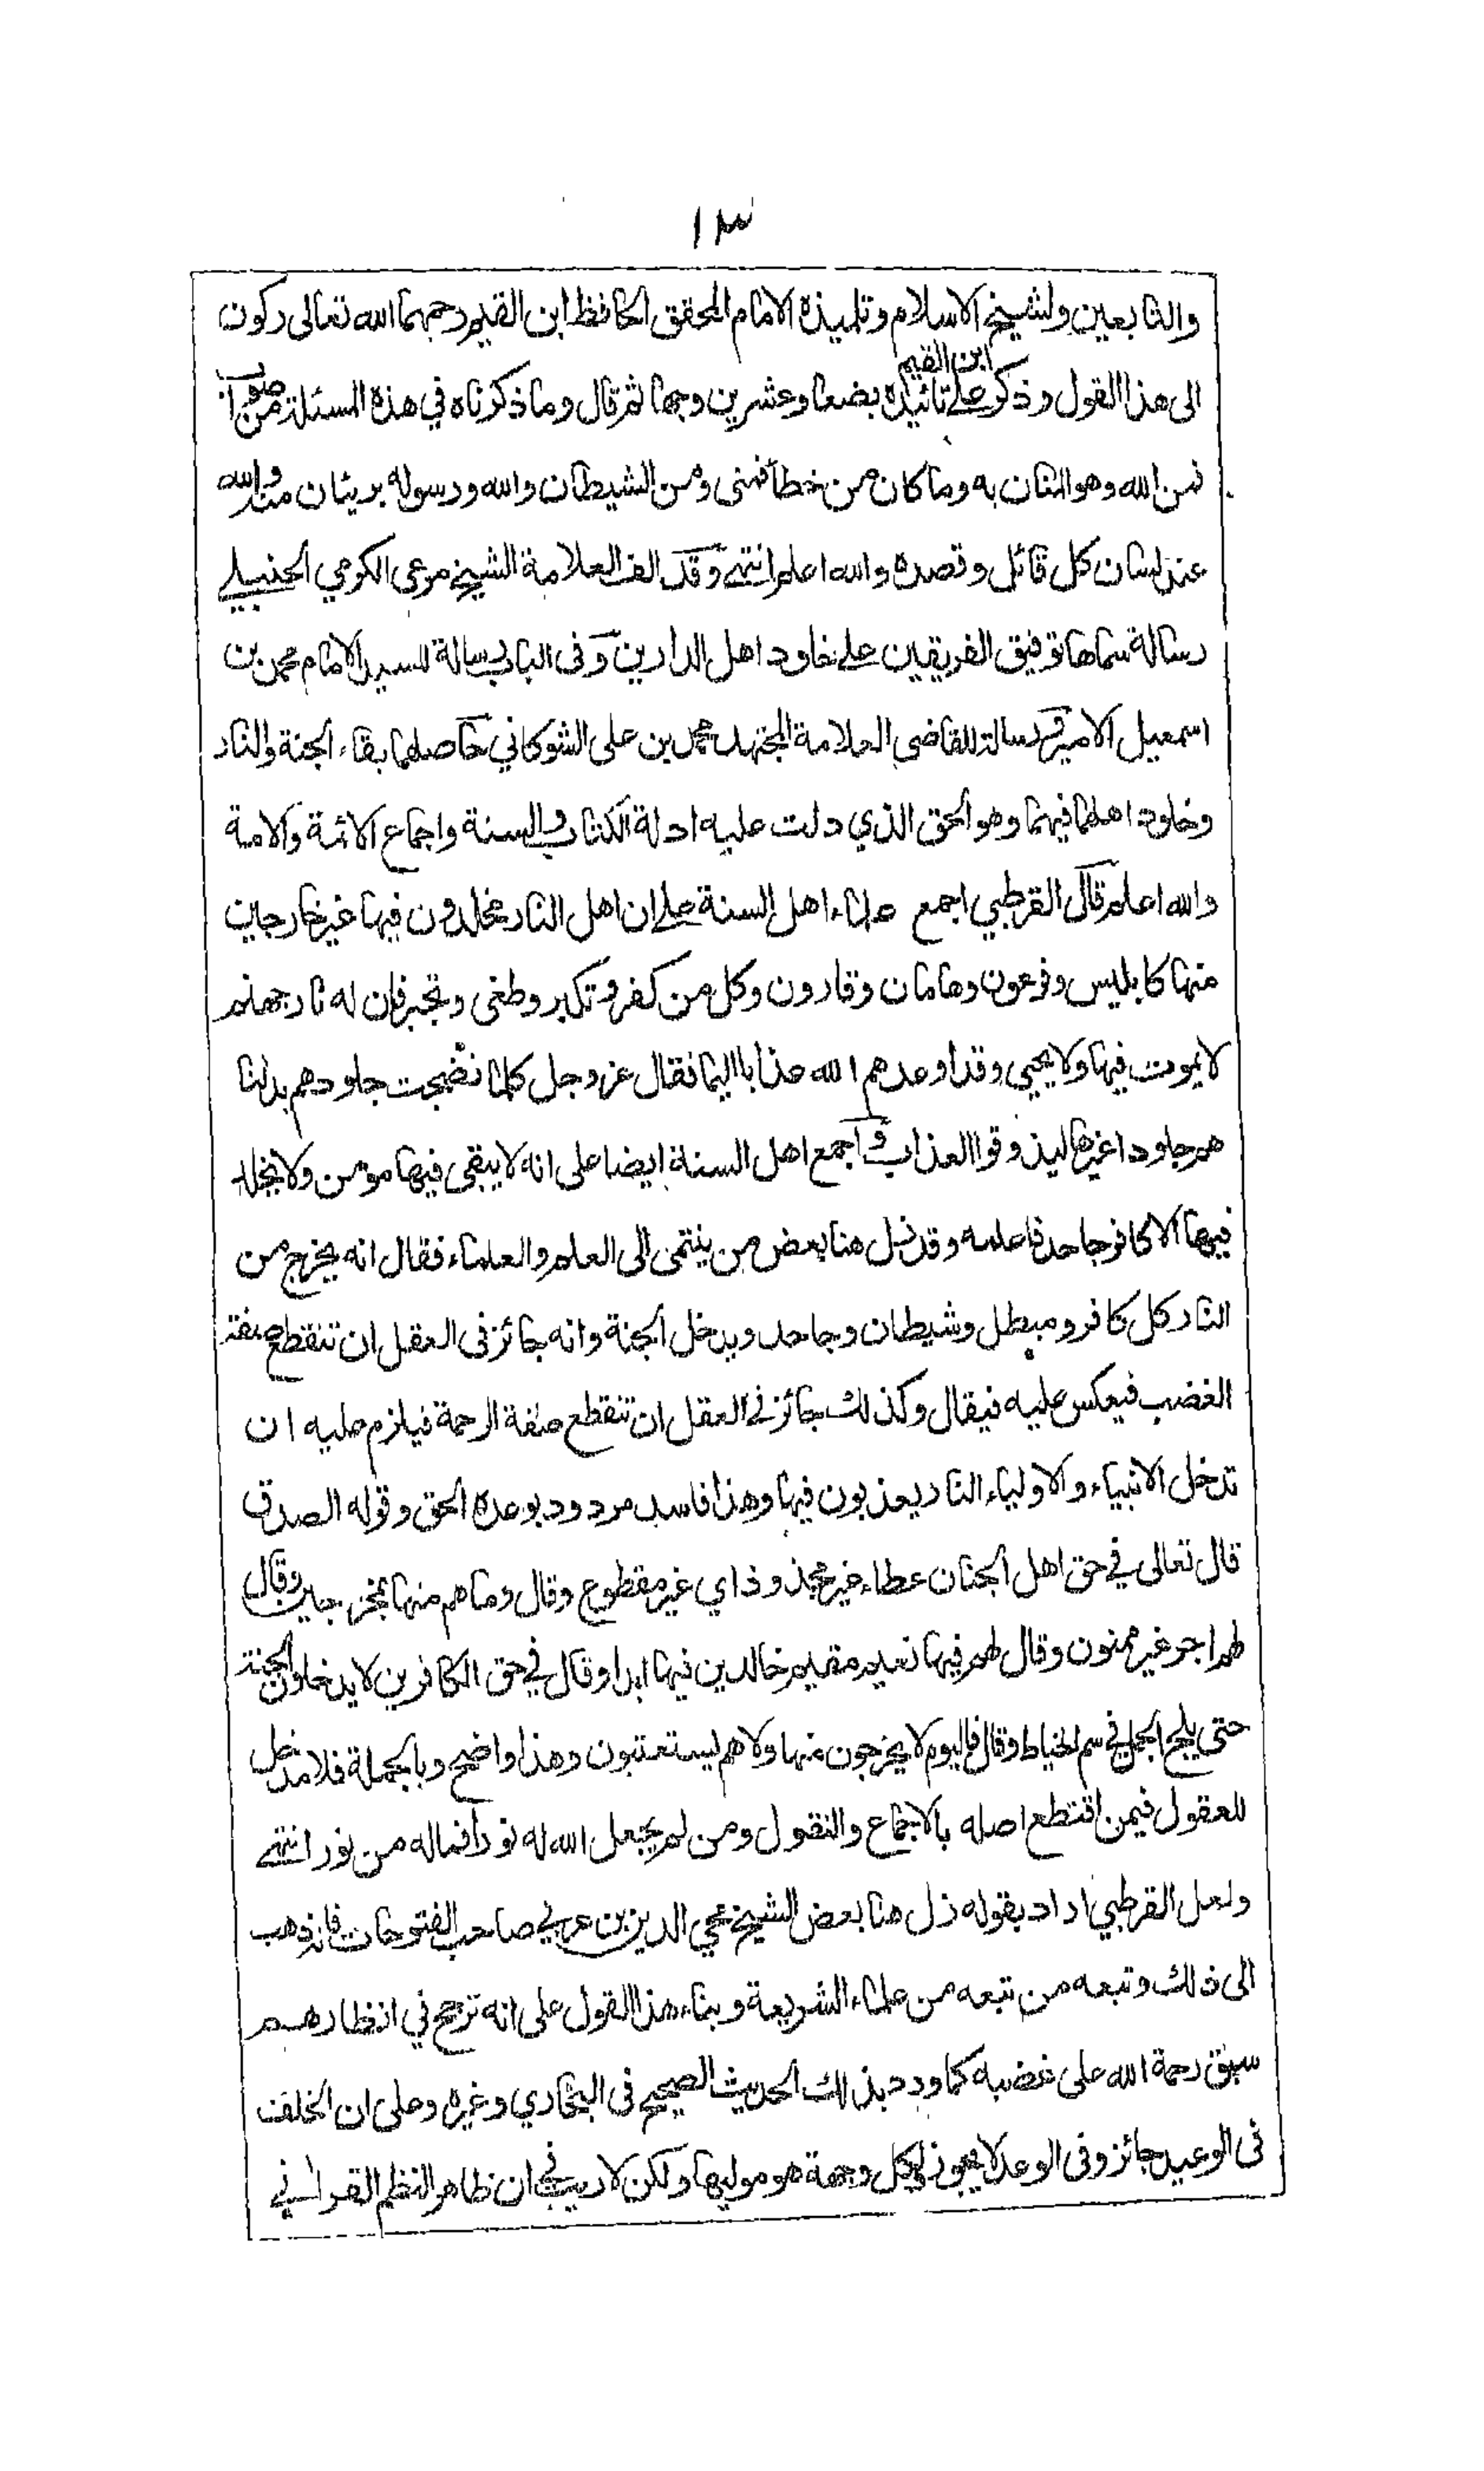 ١٣
والتابعين ولشيخ الاسلام وتلميذه الامام المحقق الحافظ ابن القيم رحمهما الله تعالى ركون
ابن القيم
الى هذا القول وذكر على تائيده بضعا وعشرين وجها ثم قال وما ذكرناه في هذه المسئلة من صواب
فمن الله وهو المنان به وما كان من خطأ فمنى ومن الشيطان والله ورسوله بريئان منه والله
عند لسان كل قائل وقصده والله اعلم انتهى وقد الف العلامة الشيخ مرعى الكرمي الحنبلي
رسالة سماها توفيق الفريقين على خلود اهل الدارين وفى الباب رسالة للسيد الامام محمد بن
اسمعيل الامير ورسالة للقاضى العلامة المجتهد محمد بن على الشوكاني حاصلهما بقاء الجنة والنار
وخلود اهلهما فيهما وهو الحق الذي دلت عليه ادلة الكتاب والسنة واجماع الائمة والامة
والله اعلم قال القرطبي اجمع علماء اهل السنة على ان اهل النار مخلدون فيها غير خارجين
منها كابليس وفرعون وهامان وقارون وكل من كفر وتكبر وطغى وتجبر فان له نار جهنم
لا يموت فيها ولا يحيى وقد اوعدهم الله عذابا اليما فقال عز وجل كلما نضجت جلودهم بدلنا
هم جلودا غيرها ليذوقوا العذاب واجمع اهل السنة ايضا على انه لا يبقى فيها مؤمن ولا يخلد
فيها الا كافر جاحد فاعلمه وقد زل هنا بعض من ينتمى الى العلم والعلماء فقال انه يخرج من
النار كل كافر ومبطل وشيطان وجاحد ويدخل الجنة وانه جائز فى العقل ان تنقطع صفة
الغضب فيعكس عليه فيقال وكذلك جائز في العقل ان تنقطع صفة الرحمة فيلزم عليه ان
تدخل الانبياء والاولياء النار يعذبون فيها وهذا فاسد مردود بوعده الحق وقوله الصدق
قال تعالى في حق اهل الجنان عطاء غير مجذوذ اي غير مقطوع وقال وما هم منها بمخرجين وقال
لهم اجر غير ممنون وقال لهم فيها نعيم مقيم خالدين فيها ابدا وقال في حق الكافرين لا يدخلون الجنة
حتى يلج الجمل في سم الخياط وقال فاليوم لا يخرجون منها ولا هم يستعتبون وهذا واضح وبالجملة فلا مدخل
للعقول فيمن اقتطع اصله بالاجماع والنقول ومن لم يجعل الله له نورا فما له من نور انتهى
ولعل القرطبي اراد بقوله زل هنا بعض الشيخ محي الدين بن عربي صاحب الفتوحات فانه ذهب
الى ذلك وتبعه من تبعه من علماء الشريعة وبناء هذا القول على انه ترجح في انظارهم
سبق رحمة الله على غضبه كما ورد بذلك الحديث الصحيح فى البخاري وغيره وعلى ان الخلف
فى الوعيد جائز وفى الوعد لا يجوز ولكل وجهة هو موليها ولكن لا ريب في ان ظاهر النظم القراٰني